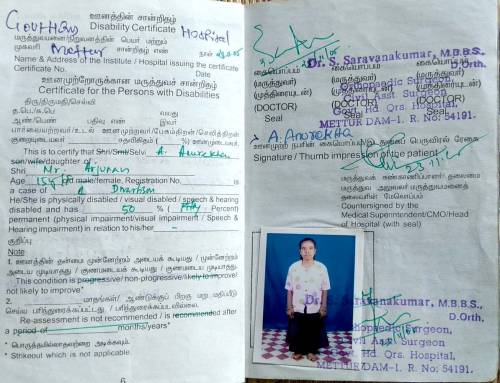 Govt Hqrs Hospital
ஊனத்தின் சான்றிதழ்
Disability Certificate
மருத்துவமனை/நிறுவனத்தின் பெயர் மற்றும்
முகவரி Mettur சான்றிதழ் எண் நாள்
Name & Address of the Institute / Hospital issuing the certificate
Certificate No. Date
ஊனமுற்றோருக்கான மருத்துவச் சான்றிதழ்
Certificate for the Persons with Disabilities
திரு/திருமதி/செல்வி
வயது
ஆண்/பெண் பதிவு எண் இவர்
This is to certify that Shri/Smt/Selvi A. Anurekha
son/wife/daughter of
Shri Mr. Arjunan
Age 15 yrs old male/female, Registration No. is
a case of Dwarfism
He/She is physically disabled / visual disabled / speech & hearing
disabled and has 50 % ( Fifty Percent)
permanent (physical impairment/visual impairment / speech &
Hearing impairment) in relation to his/her –
குறிப்பு
Note
1. ஊனத்தின் தன்மை முன்னேற்றம் அடைய கூடியது / முன்னேற்றம்
அடைய முடியாதது / குணமடையக் கூடியது / குணமடைய முடியாதது.
This condition is progressive/non-progressive/likely to improve/
not likely to improve*
2. மாதங்கள்/ ஆண்டுக்குப் பிறகு மறு மதிப்பீடு
செய்ய பரிந்துரைக்கப்பட்டது / பரிந்துரைக்கப்படவில்லை.
Re-assessment is not recommended / is recommended after
a period of months/years*
* பொருத்தமில்லாதவற்றை அடிக்கவும்.
* Strikeout which is not applicable
6
கையொப்பம் கையொப்பம் கையொப்பம்
(மருத்துவர்) (மருத்துவர்) (மருத்துவர்)
(முத்திரையுடன்) (முத்திரையுடன்)
(DOCTOR) (DOCTOR) (DOCTOR)
Seal Seal Seal
Dr. S. Saravanakumar, M.B.B.S.,
D.Orth.
Orthopaedic Surgeon,
Civil Asst Surgeon
Govt. Hd. Qrs. Hospital,
METTUR DAM-1. R. No: 54191.
A. Anurekha
Signature / Thumb impression of the patient
மருத்துவக் கண்காணிப்பாளர்/ தலைமை
மருத்துவ அலுவலர் மருத்துவமனைத்
தலைவரின் மேலொப்பம்
Countersigned by the
Medical Superintendent/CMO/Head
of Hospital (with seal)
Dr. S. Saravanakumar, M.B.B.S.,
D.Orth.
Orthopaedic Surgeon,
Civil Asst Surgeon
Govt. Hd. Qrs. Hospital,
METTUR DAM-1. R. No: 54191.